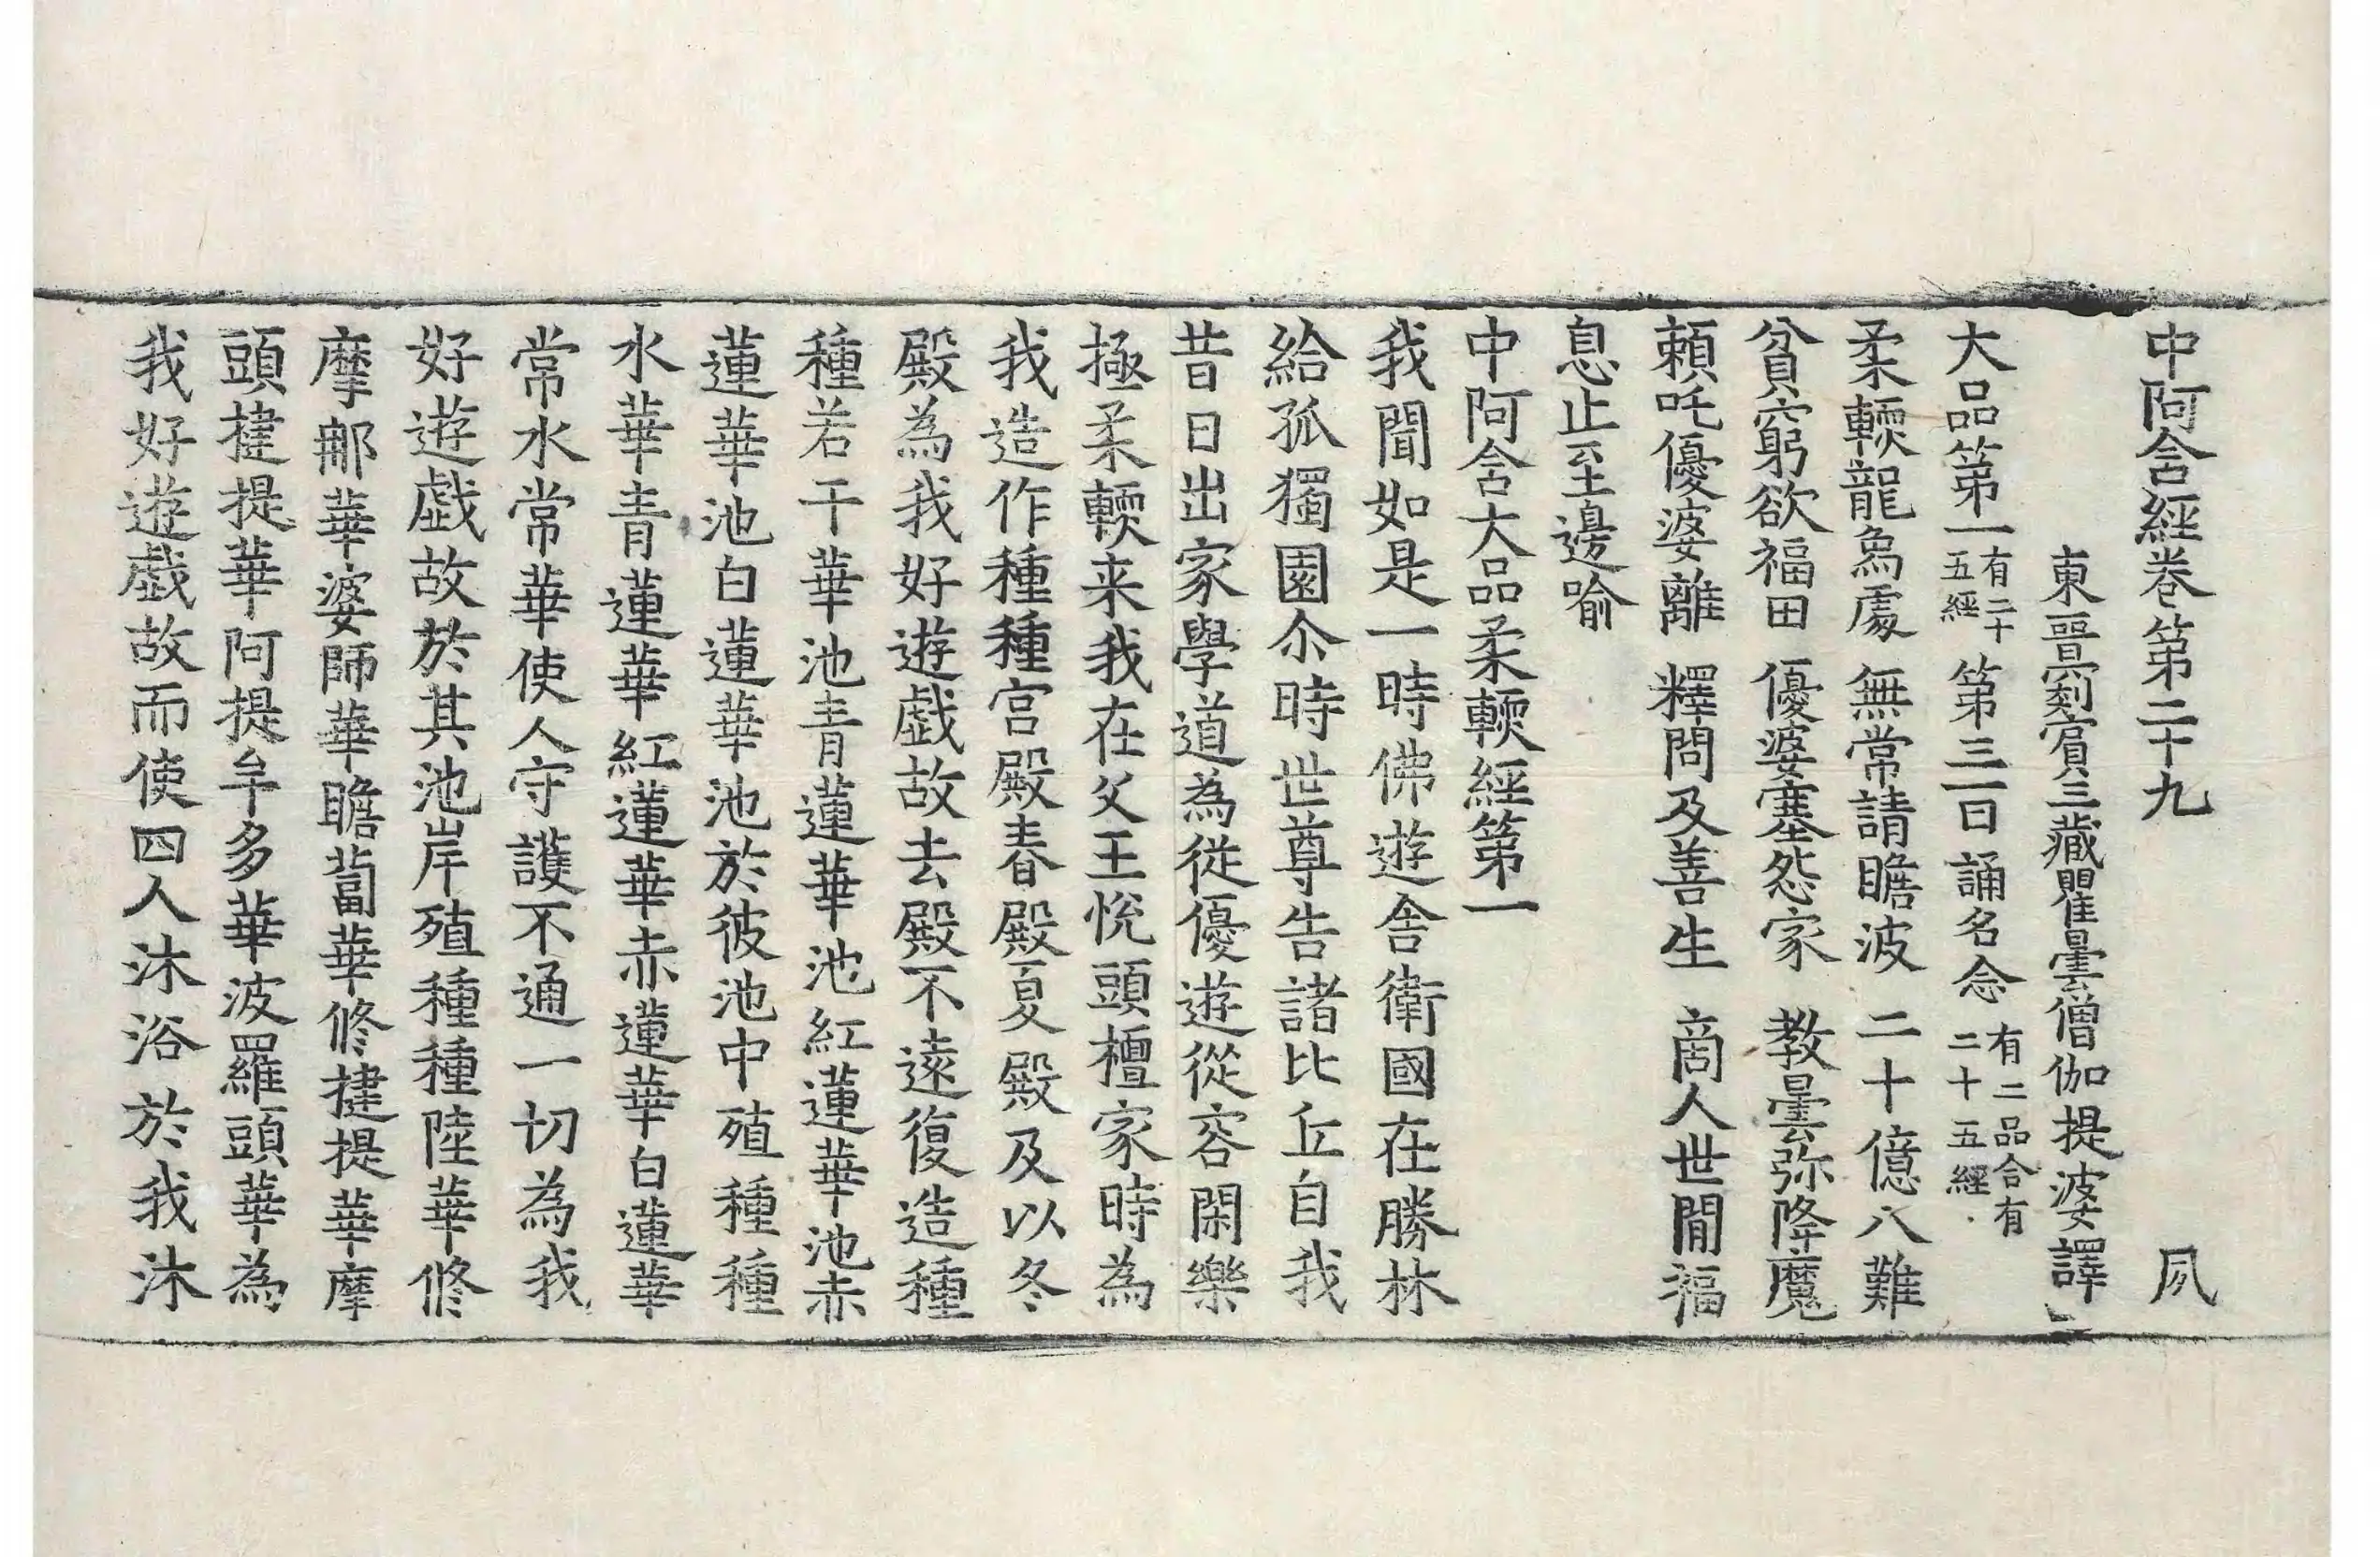 中阿含經卷第二十九 夙
東晉罽賓三藏瞿曇僧伽提婆譯
大品第一 有二十五經 第三一日誦名念 有二品合有二十五經
柔輭龍象處 無常請瞻波 二十億八難
貧窮欲福田 優婆塞怨家 教曇弥降魔
賴吒優婆離 釋問及善生 啇人世閒福
息止至邊喻
中阿含大品柔輭經第一
我聞如是一時佛遊舍衛國在勝林
給孤獨園尒時世尊告諸比丘自我
昔日出家學道為從優遊從容閑樂
極柔輭来我在父王悅頭檀家時為
我造作種種宮殿春殿夏殿及以冬
殿為我好遊戱故去殿不遠復造種
種若干華池青蓮華池紅蓮華池赤
蓮華池白蓮華池於彼池中殖種種
水華青蓮華紅蓮華赤蓮華白蓮華
常水常華使人守護不通一切為我
好遊戱故於其池岸殖種種陸華修
摩那華婆師華瞻蔔華修揵提華摩
頭揵提華阿提牟多華波羅頭華為
我好遊戱故而使四人沐浴於我沐